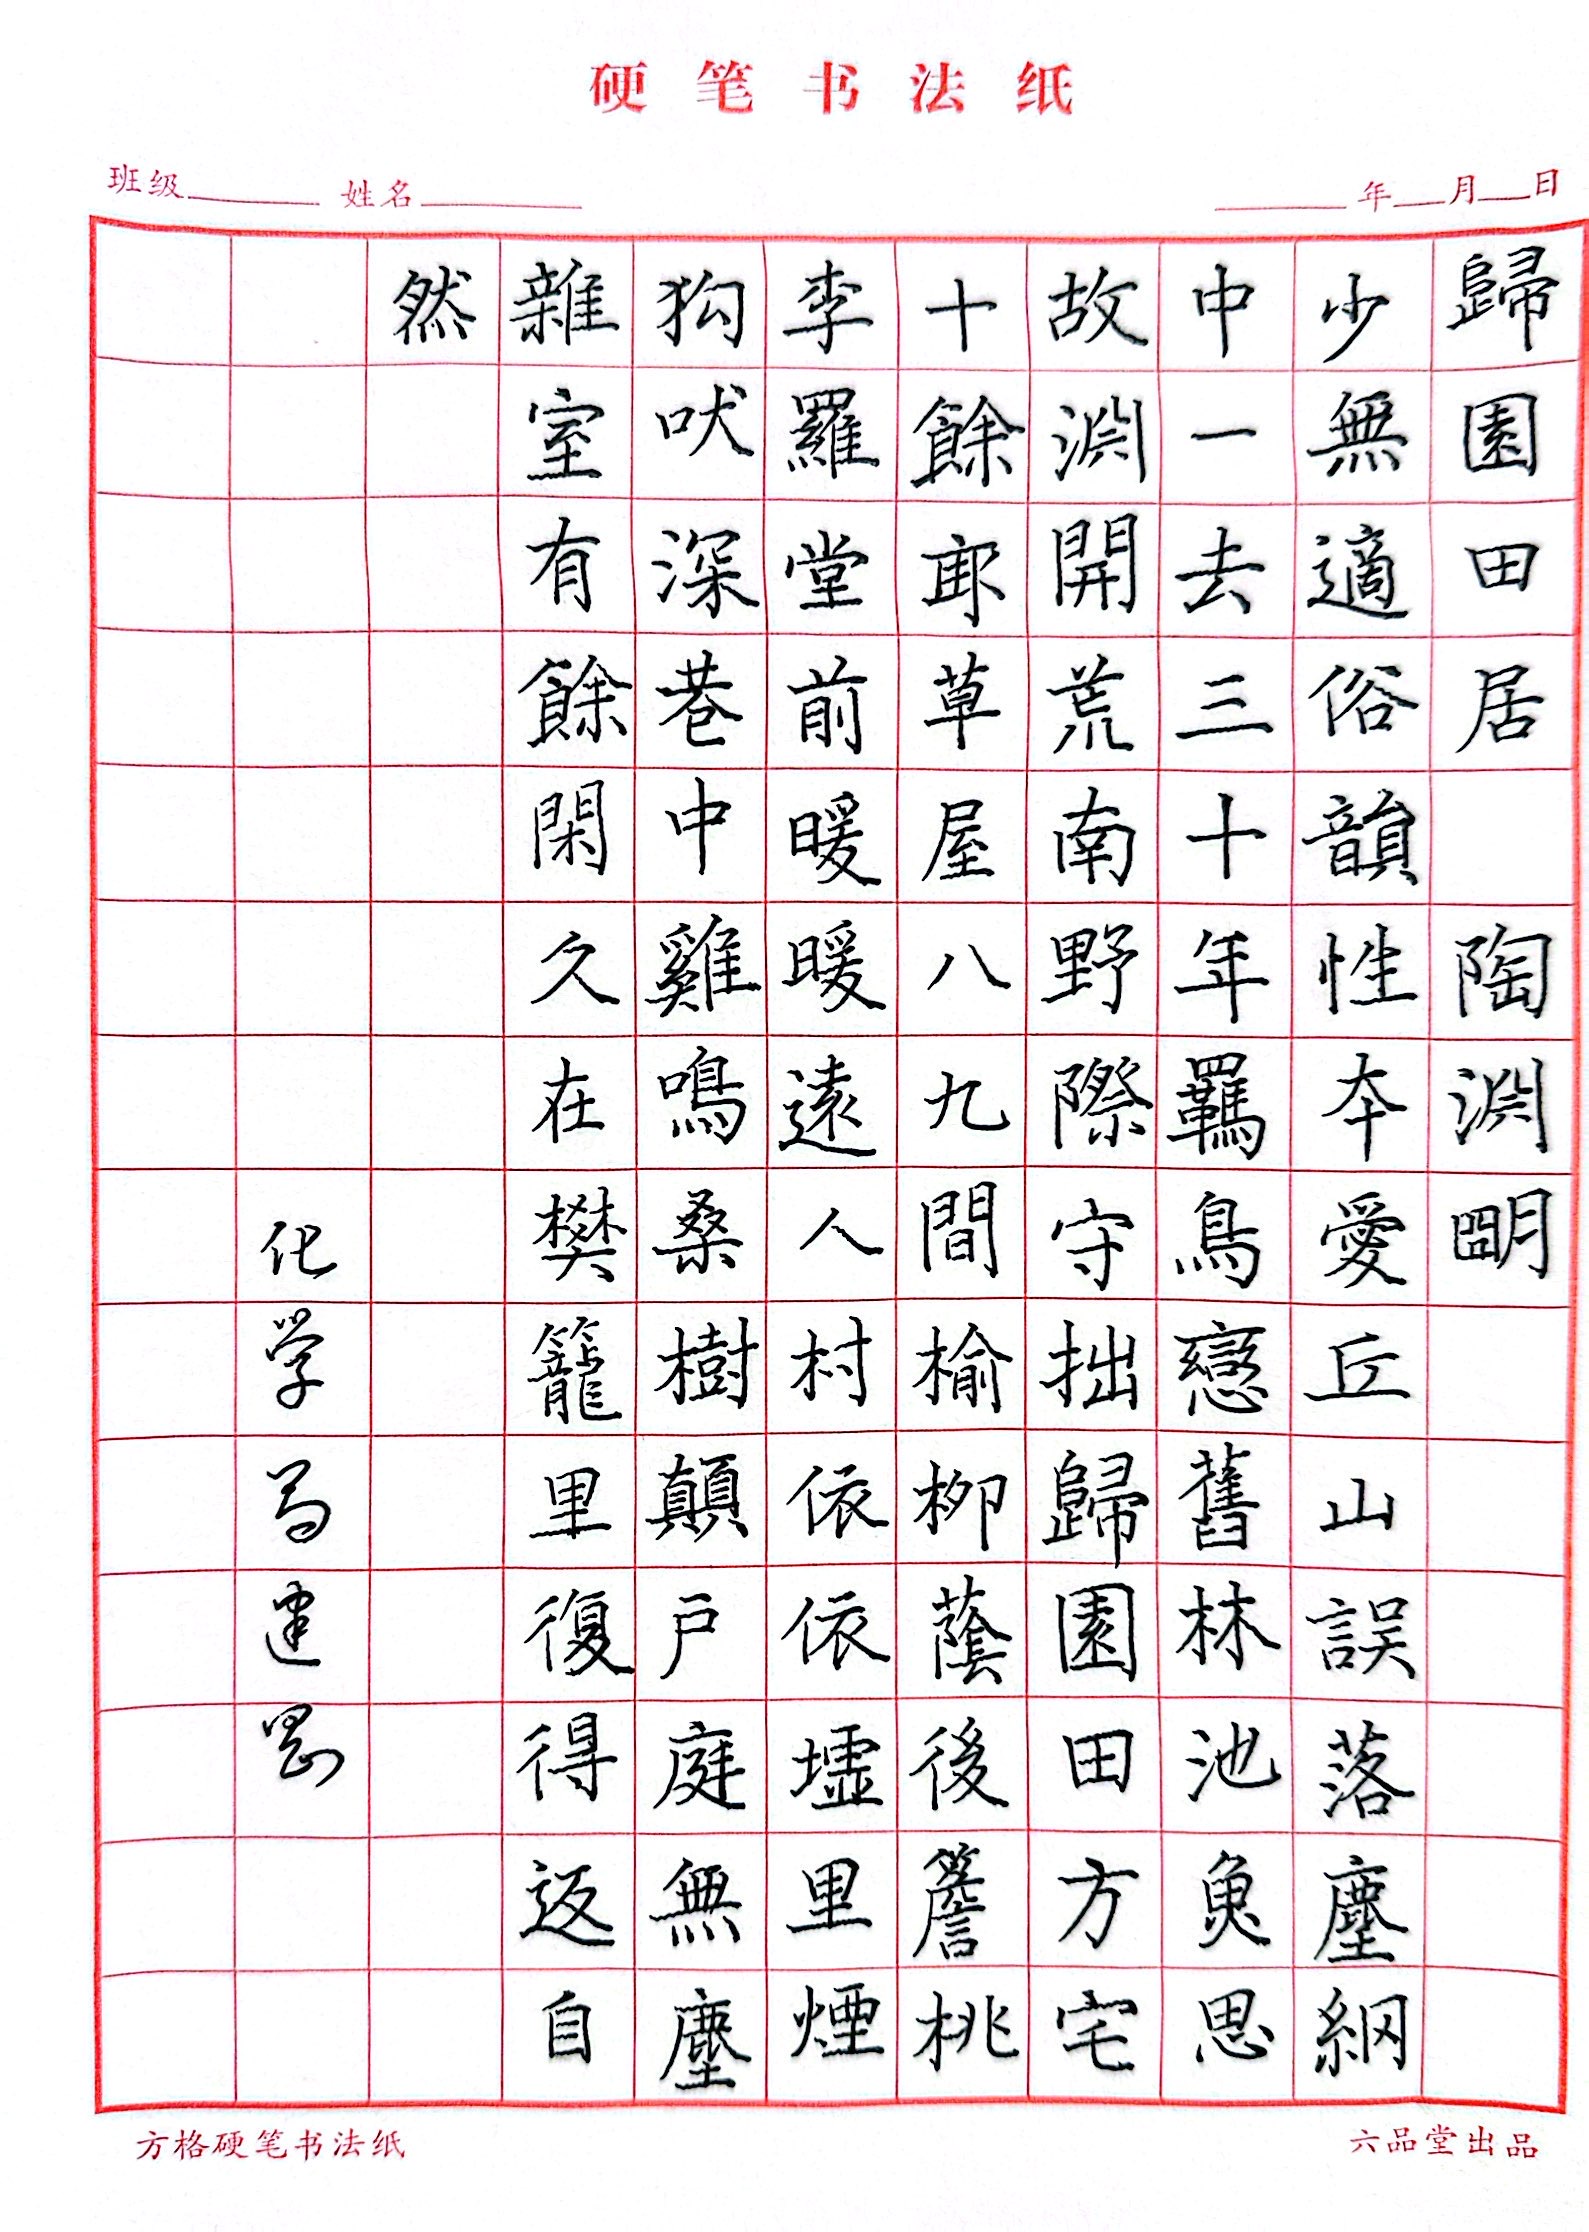 硬笔书法纸
班级 姓名 年 月 日
歸園田居 陶淵明
少無適俗韻性本愛丘山誤落塵網
中一去三十年羈鳥戀舊林池魚思
故淵開荒南野際守拙歸園田方宅
十餘畝草屋八九間榆柳蔭後簷桃
李羅堂前暖暖遠人村依依墟里煙
狗吠深巷中雞鳴桑樹顛戶庭無塵
雜室有餘閑久在樊籠里復得返自
然
化学
方格硬笔书法纸
六品堂出品